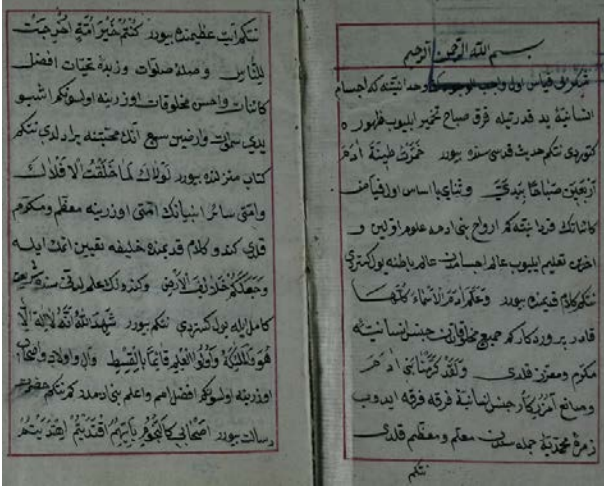 بسم الله الرحمن الرحيم
شكر بى قياس اول واجب الوجودك وحدانيتنه كه اجسام
انسانية يد قدرتيله فرق صباح تخمير ايليوب ظهوره
كتوردى نتكم حديث قدسى سنده بيورر خمرت طينة ادم
اربعين صباحا بيدى وثناى با اساس اول فياض
كائناتك فردانيتنه كم ارواح بنى ادمه علوم اولين و
اخرين تعليم ايليوب عالم اجسامدن عالم باطنه يول كستردى
نتكم كلام قديمنده بيورر وعلم ادم الاسماء كلها
قادر پروردكار كم جميع مخلوقاتدن جنس انسانيتى
مكرم ومعزز قلدى ولقد كرمنا بنى ادم
وصانع آمرزكار جنس انسانية فرقه فرقه ايدوب
زمرۀ محمدية جمله سندن معلم ومعظم قلدى
نتكم
نتكم آيت عظيمنده بيورر كنتم خير امة اخرجت
للناس وصدۀ صلوات وزبدۀ تحيات افضل
كائنات واحسن مخلوقات اوزرينه اولسونكم اشبو
يدى سموات وارضين سبع آنك محبتنه يرادلدى نتكم
كتاب منزلنده بيورر لولاك لما خلقت الافلاك
وامتى سائر انبيانك امتى اوزرينه معظم ومكرم
قلدى كندو كلام قديمنده خليفه تعيين اتمك ايله
وجعلكم خلائف الارض وكندولك علم لدنى سنده شريعت
كامل ايله يول كستردى نتكم بيورر شهد الله انه لا اله الا
هو والملئكة واولوا العلم قائما بالقسط وآل واولاد واصحاب
اوزرينه اولسونكم افضل امم واعلم بنى ادمدر كم نتكم حضرت
رسالت بيورر اصحابى كالنجوم بايهم اقتديتم اهتديتم